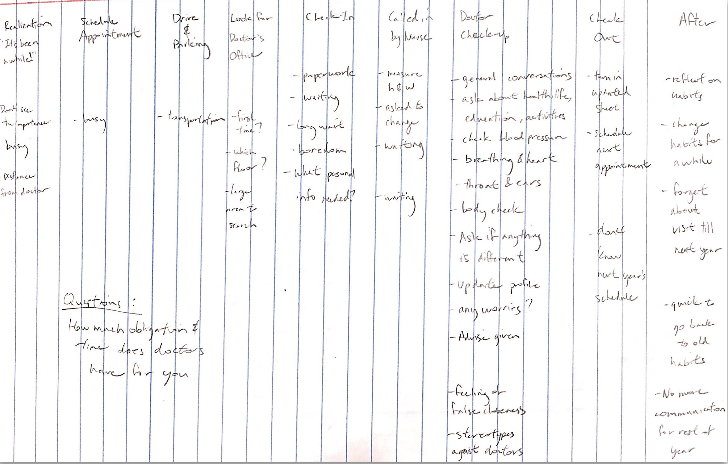 Realization
"It's been
awhile"
Don't see
the importance
busy
Distance
from doctor
Schedule
Appointment
- busy
Drive
&
Parking
- transportation
Look for
Doctor's
Office
- first
time?
- which
floor?
- large
area to
search
Check-In
- paperwork
- waiting
- long wait
- boredom
- what personal
info needed?
Called in
by Nurse
- measure
h&w
- asked to
change
- waiting
- waiting
Doctor
Check-up
- general conversations
- ask about health, life,
education, activities
- check blood pressure
- breathing & heart
- throat & ears
- body check
- Ask if anything
is different
- update profile
- any worries?
- Advise given
- feeling of
false closeness
- stereotypes
against doctors
Check
Out
- turn in
updated
sheet
- schedule
next
appointment
- don't
know
next year's
schedule
After
- reflect on
habits
- change
habits for
a while
- forget
about
visit till
next year
- quick to
go back
to old
habits
- No more
communication
for rest of
year
Questions:
How much obligation &
time does doctors
have for you